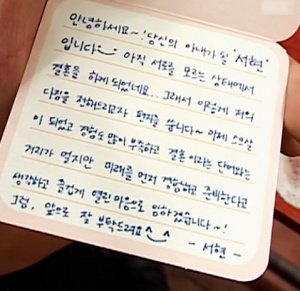 안녕하세요~! 당신의 아내가 될 "서현"
입니다 아직 서로를 모르는 상태에서
결혼을 하게 되었네요.. 그래서 이렇게 저의
다짐을 전해드리고자 편지를 씁니다~ 이제 스무살
이 되었고 경험도 많이 부족하고 결혼이라는 단어와는
거리가 멀지만 미래를 먼저 경험하고 준비한다고
생각하고 즐겁게 열린 마음으로 임하겠습니다~!
그럼, 앞으로 잘 부탁드려요 ^_^
- 서현 -